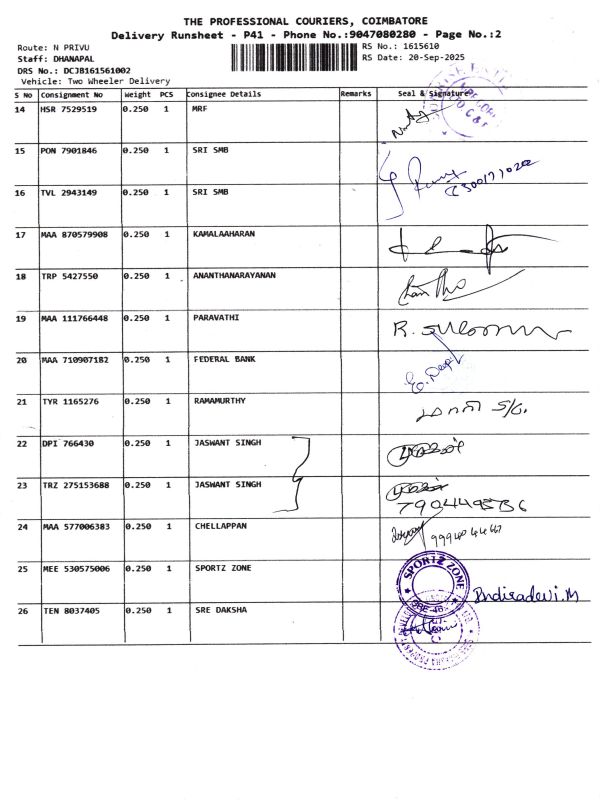 THE PROFESSIONAL COURIERS, COIMBATORE
Delivery Runsheet - P41 - Phone No.:9047080280 - Page No.:2
Route: N PRIVU
RS No.: 1615610
Staff: DHANAPAL
RS Date: 20-Sep-2025
DRS No.: DCJ8161561002
Vehicle: Two Wheeler Delivery
S NO Consignment No Weight PCS Consignee Details Remarks Seal & Signature
14 HSR 7529519 0.250 1 MRF
15 PON 7901846 0.250 1 SRI SMB
16 TVL 2943149 0.250 1 SRI SMB
17 MAA 870579908 0.250 1 KAMALAAHARAN
18 TRP 5427550 0.250 1 ANANTHANARAYANAN
19 MAA 111766448 0.250 1 PARAVATHI
20 MAA 710907182 0.250 1 FEDERAL BANK
21 TYR 1165276 0.250 1 RAMAMURTHY
22 DPI 766430 0.250 1 JASWANT SINGH
23 TRZ 275153688 0.250 1 JASWANT SINGH
24 MAA 577006383 0.250 1 CHELLAPPAN
25 MEE 530575006 0.250 1 SPORTZ ZONE SPORTZ ZONE Indiradevi.M
26 TEN 8037405 0.250 1 SRE DAKSHA